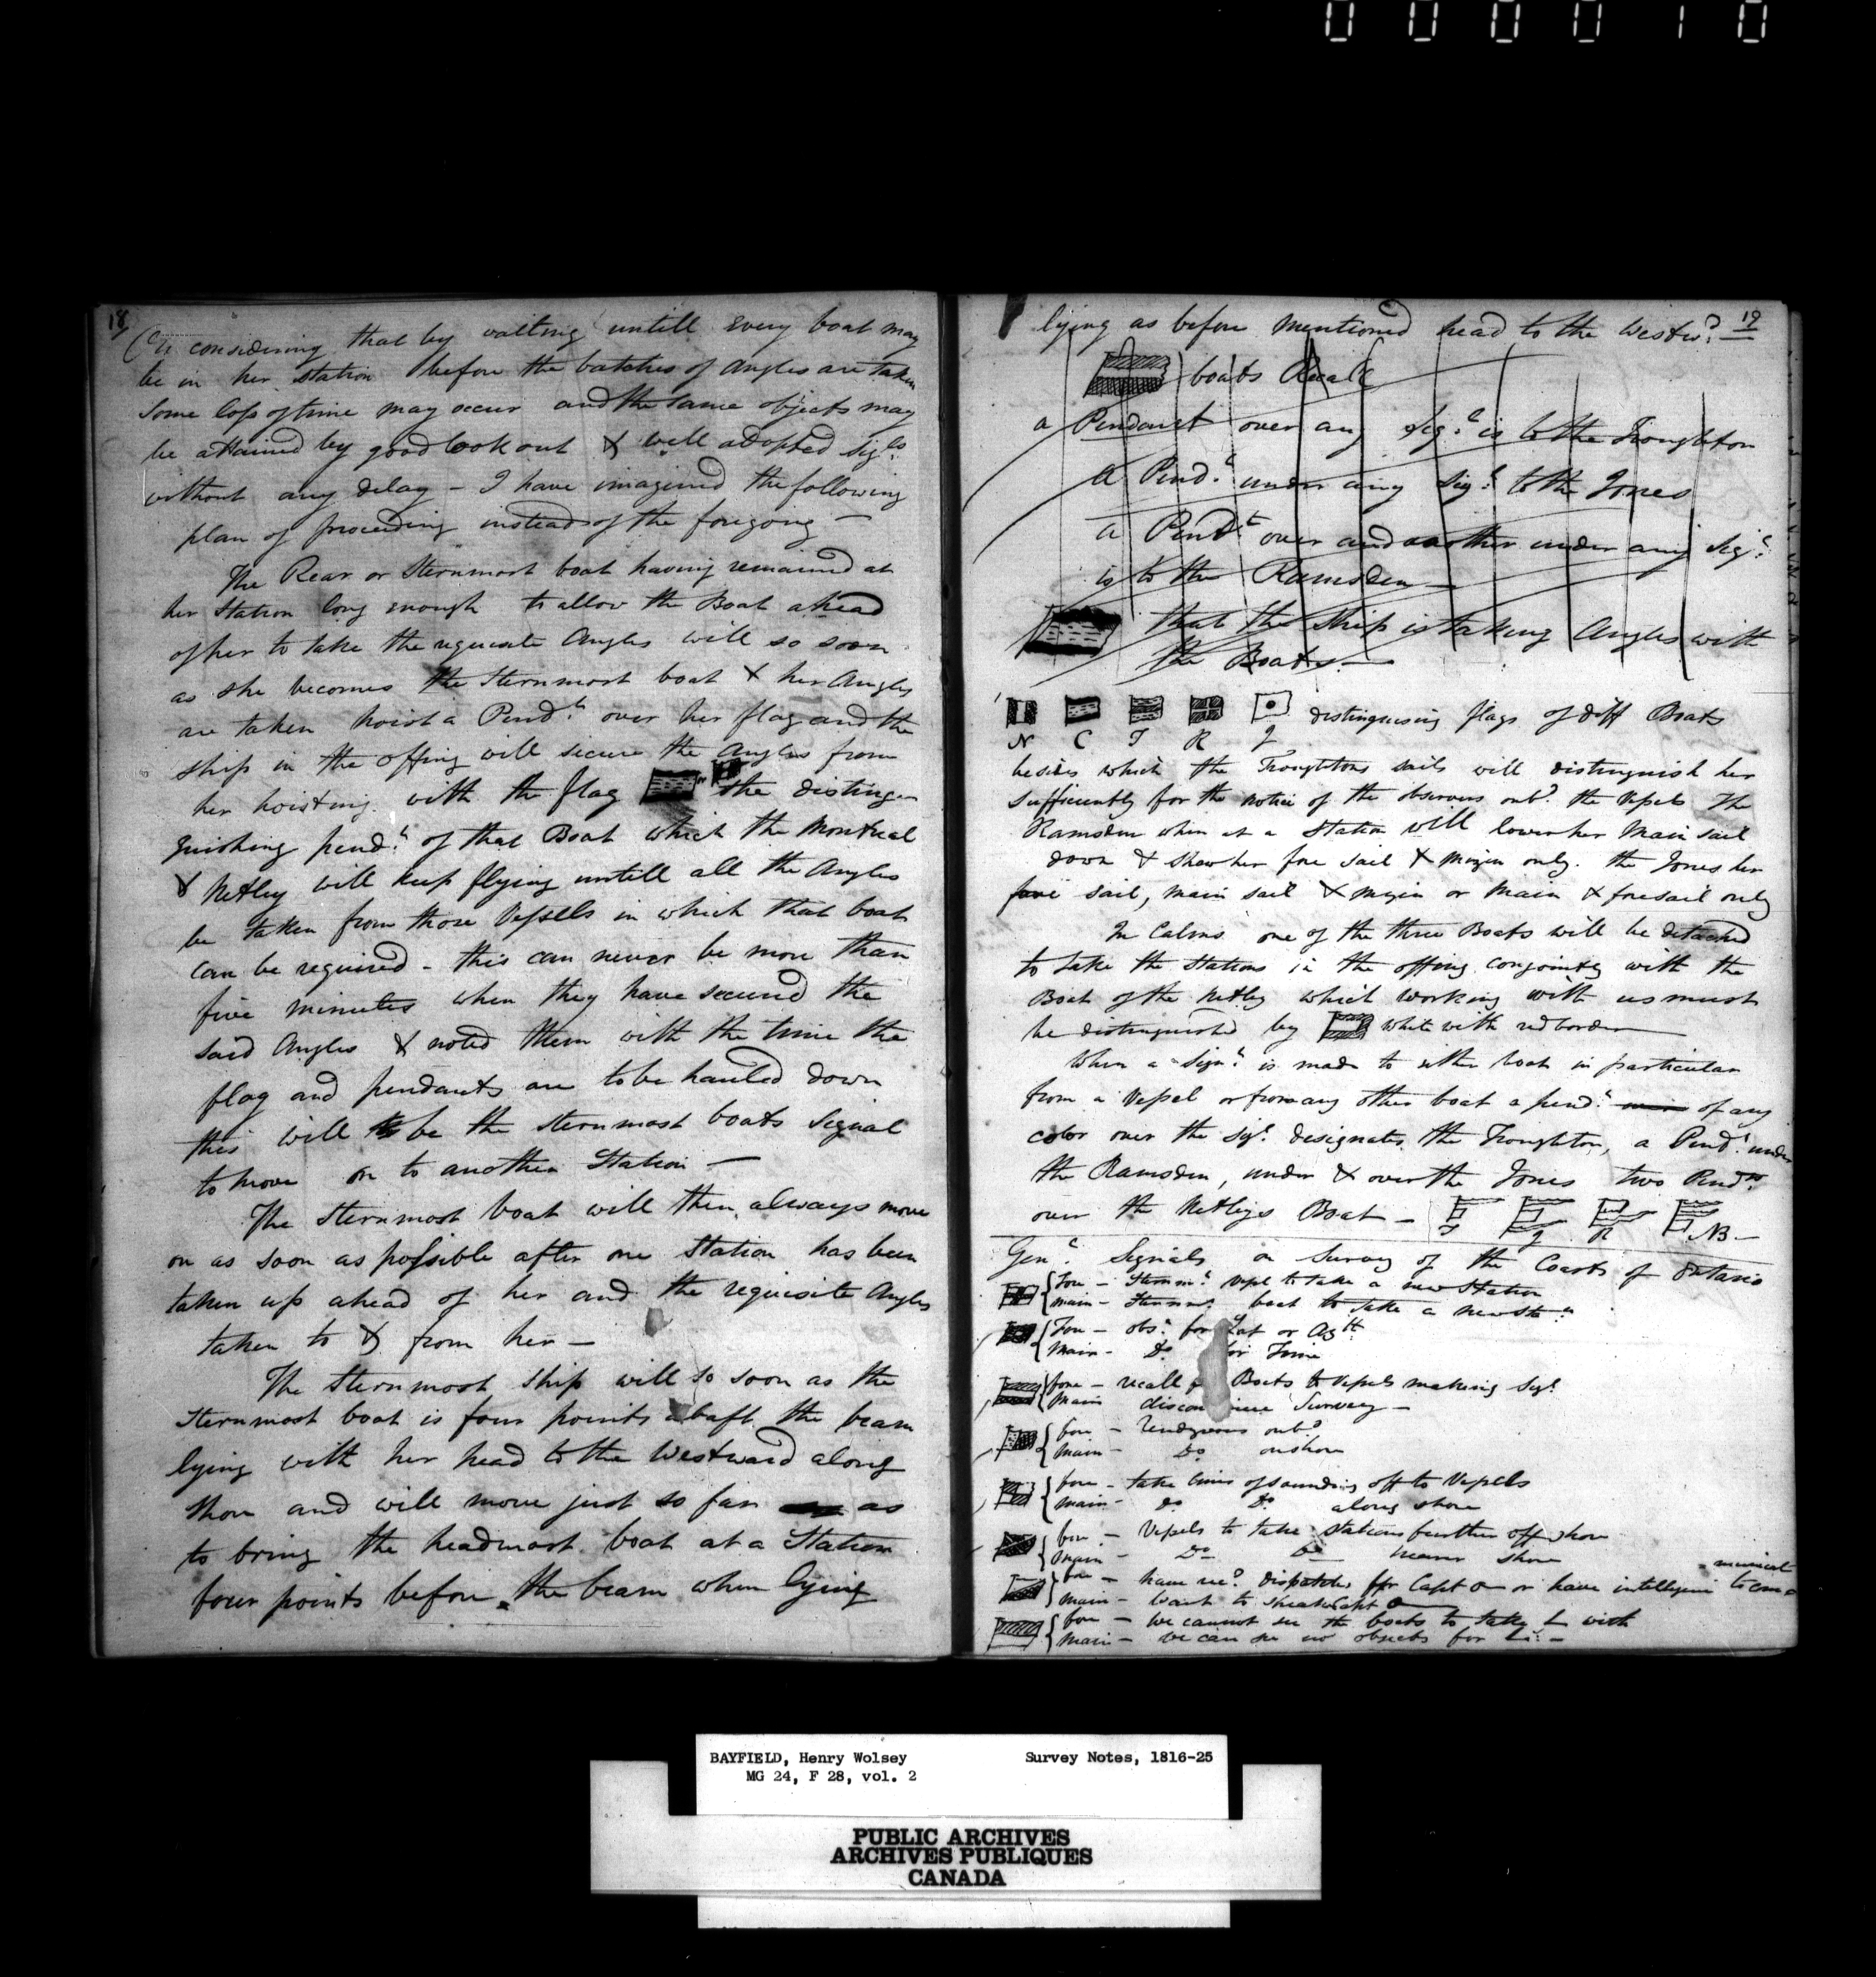 000010
18
considering that by waiting untill every boat may
be in her station before the batches of Angles are taken
some loss of time may occur and the same objects may
be attained by good look out & well adopted Sigls
without any delay - I have imagined the following
plan of proceeding instead of the foregoing -
The Rear or Sternmost boat having remained at
her Station long enough to allow the Boat ahead
of her to take the requisite Angles will so soon
as she becomes the Sternmost boat & her Angles
are taken hoist a Pendt over her flag and the
ship in the offing will secure the Angles from
her hoisting with the flag the distin-
guishing pendt of that Boat which the Montreal
& Netley will keep flying untill all the Angles
be taken from those Vessels in which that boat
can be required - this can never be more than
five minutes when they have secured the
said Angles & noted them with the time the
flag and pendants are to be hauled down
this will be the sternmost boats Signal
to move on to another Station -
The Sternmost boat will then always move
on as soon as possible after one Station has been
taken up ahead of her and the requisite Angles
taken to & from her -
The Sternmost Ship will so soon as the
Sternmost boat is four points abaft the beam
lying with her head to the Westward along
shore and will move just so far as
to bring the headmost boat at a Station
four points before the beam when lying
19
lying as before mentioned head to the Westwd
boats Recall
a Pendant over any Sigl is to the Troughton
a Pendt under any Sigl to the Jones
a Pendt over and another under any Sigl
is to the Ramsden
that the Ship is taking Angles with
the Boats -
distinguising flags of diff Boats
N C T R J
besides which the Troughtons sails will distinguish her
sufficiently for the notice of the observers onbd the Vessels The
Ramsden when at a Station will lower her Main sail
down & shew her fore sail & mizin only. the Jones her
fore sail, main sail & mizin or Main & foresail only
In Calms one of the three Boats will be detached
to take the Stations in the offing conjointly with the
Boat of the Netley which working with us must
be distinguished by white with red border
When a Signl is made to either boat in particular
from a Vessel or from any other boat a pendt of any
color over the Sigl designates the Troughton, a Pendt under
the Ramsden, under & over the Jones two Pendts
over the Netleys Boat -
T J R NB -
Genl Signals on Survey of the Coasts of Ontario
Fore - Sternmt Vessl to take a new Station
main - Sternmt boat to take a new Stn
Fore - obsn for Lat or Azth
Main - Do for Time
fore - recall Boats to Vessels making Sigl
Main Survey -
fore - Rendezvous onbd
Main - Do onshore
fore - take lines of sounding off to Vessels
main - do Do along shore
fore - Vessels to take stations further off shore
Main - Do Do nearer shore
fore - have recd dispatches for Capt O or have intelligence to com
municat
main - want to speak Capt O
fore - We cannot see the boats to take with
main - We can see no objects for
BAYFIELD, Henry Wolsey Survey Notes, 1816-25
MG 24, F 28, vol. 2
PUBLIC ARCHIVES
ARCHIVES PUBLIQUES
CANADA